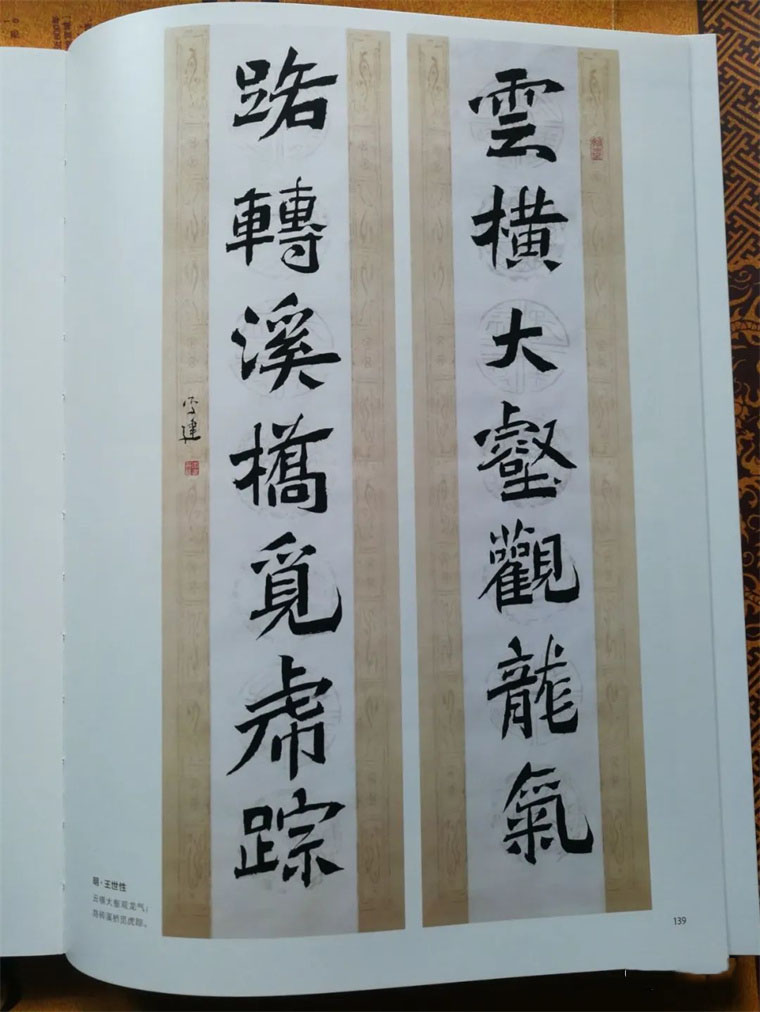 雲橫大壑觀龍氣
路轉溪橋覓虎踪
守建
明·王世性
云横大壑观龙气，
路转溪桥觅虎踪。
139